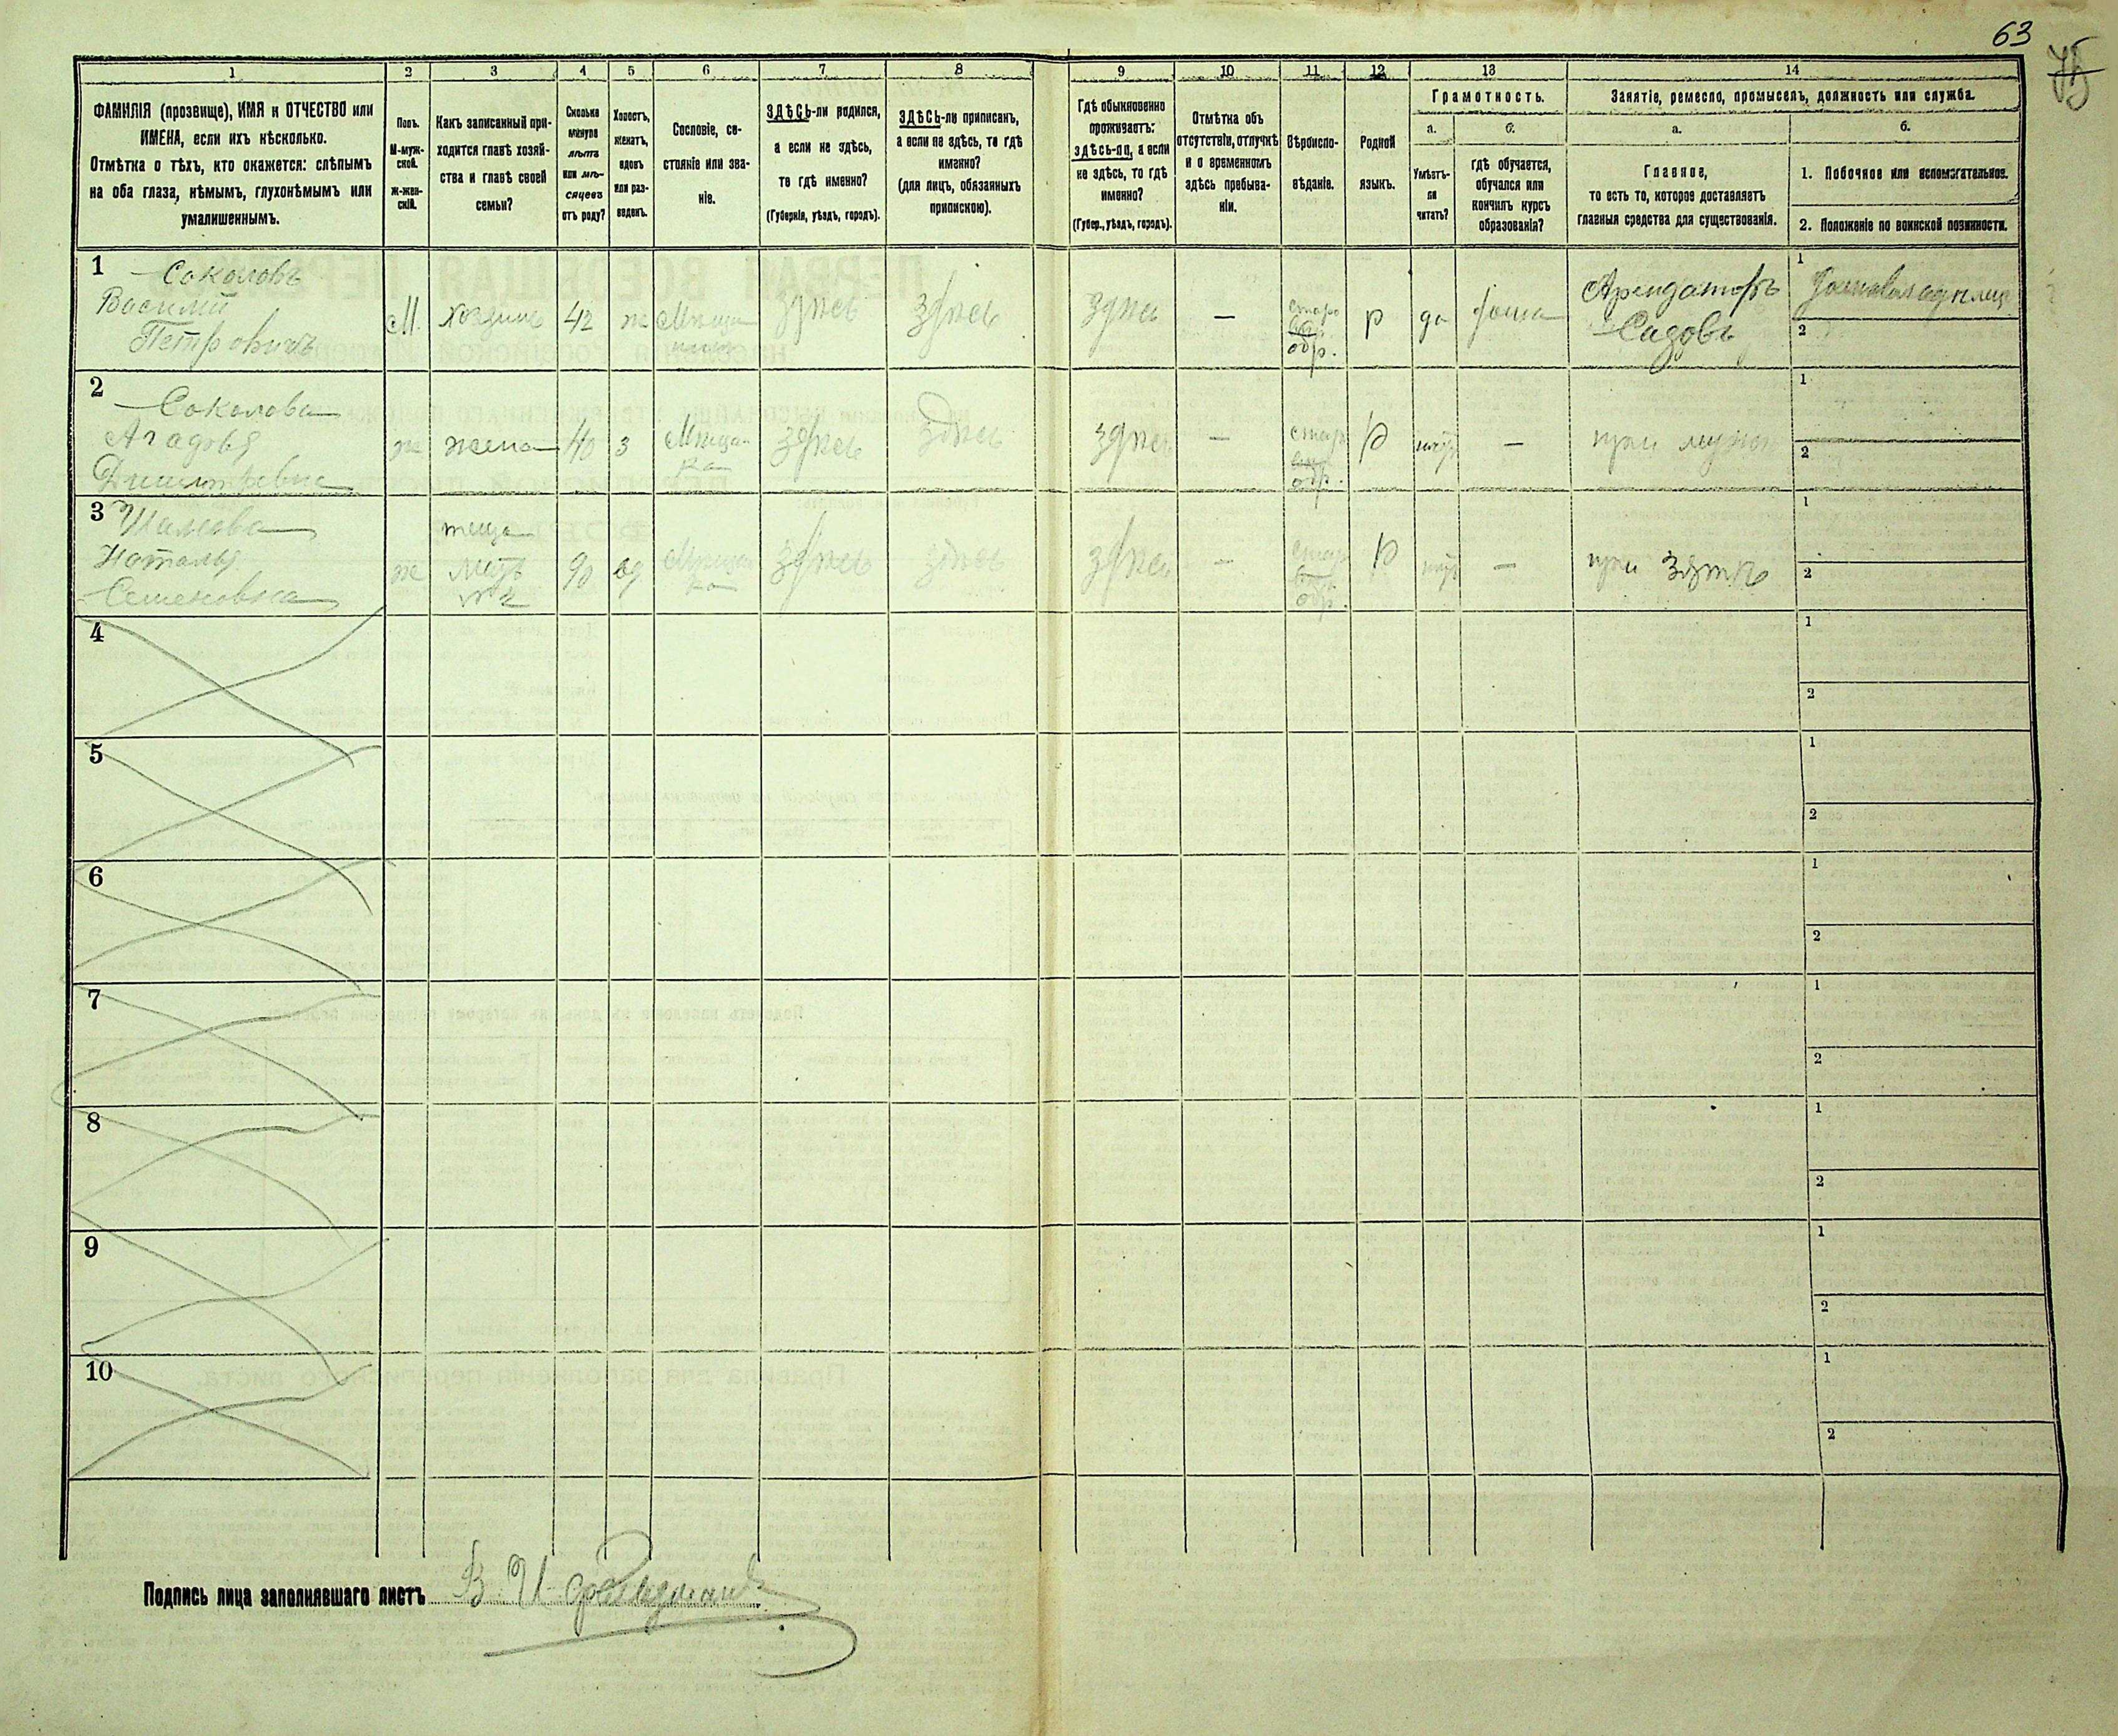 63
75
1 2 3 4 5 6 7 8 9 10 11 12 13 14
ФАМИЛІЯ (прозвище), ИМЯ и ОТЧЕСТВО или
ИМЕНА, если ихъ нѣсколько.
Отмѣтка о тѣхъ, кто окажется: слѣпымъ
на оба глаза, нѣмымъ, глухонѣмымъ или
умалишеннымъ.
Полъ.
М-муж-
ской.
Ж-жен-
скій.
Какъ записанный при-
ходится главѣ хозяй-
ства и главѣ своей
семьи?
Сколько
минуло
лѣтъ
или мѣ-
сяцевъ
отъ роду?
Холостъ,
женатъ,
вдовъ
или раз-
веденъ.
Сословіе, со-
стояніе или зва-
ніе.
ЗДѢСЬ-ли родился,
а если не здѣсь,
то гдѣ именно?
(Губернія, уѣздъ, городъ).
ЗДѢСЬ-ли приписанъ,
а если не здѣсь, то гдѣ
именно?
(для лицъ, обязанныхъ
припискою).
Гдѣ обыкновенно
проживаетъ:
здѣсь-ли, а если
не здѣсь, то гдѣ
именно?
(Губер., уѣздъ, городъ).
Отмѣтка объ
отсутствіи, отлучкѣ
и о временномъ
здѣсь пребыва-
ніи.
Вѣроиспо-
вѣданіе.
Родной
языкъ.
Грамотность.
а.
Умѣетъ-
ли
читать?
б.
гдѣ обучается,
обучался или
кончилъ курсъ
образованія?
Занятіе, ремесло, промыселъ, должность или служба.
а.
Главное,
то есть то, которое доставляетъ
главныя средства для существованія.
б.
1. Побочное или вспомогательное.
2. Положеніе по воинской повинности.
1
Соколовъ
Василий
Петровичъ
М.
хозяинъ
42
ж
Мѣща
нинъ
здѣсь
здѣсь
здѣсь
—
старо
обр.
р
да
дома
Арендаторъ
Садовъ
1
Домовладѣлец
2
2
Соколова
Агафья
Димитревна
ж
жена
40
з
Мѣщан
ка
здѣсь
здѣсь
здѣсь
—
стар
обр.
р
нѣтъ
—
при мужѣ
1
2
3
Наталья
Семеновна
ж
теща
90
вд
Мѣщан
ка
здѣсь
здѣсь
здѣсь
—
стар
обр.
р
нѣтъ
—
при зятѣ
1
2
4
1
2
5
1
2
6
1
2
7
1
2
8
1
2
9
1
2
10
1
2
Подпись лица заполнявшаго листъ В. И.